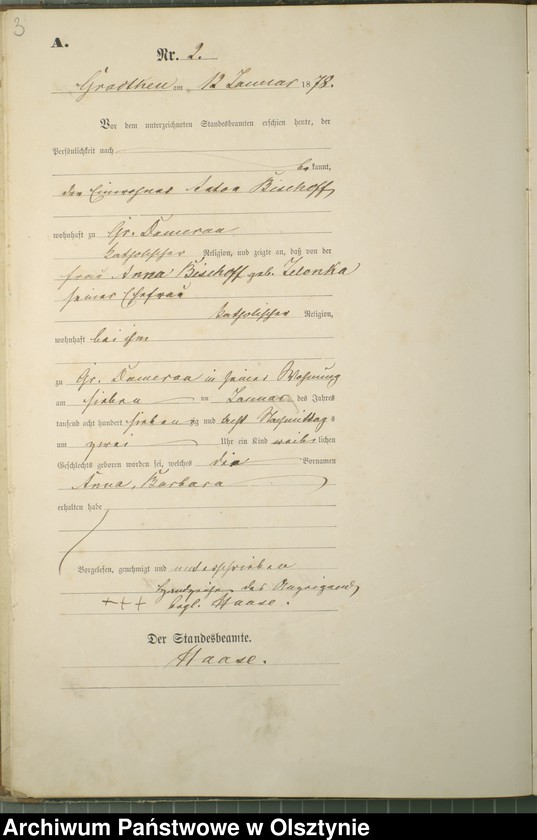 3
A.
Nr. 2.
am 12 Januar 1878.
Vor dem unterzeichneten Standesbeamten erschien heute, der
Persönlichkeit nach
bekannt,
der Einwohner Anton Bischoff
wohnhaft zu Gr. Damerau
katholischer Religion, und zeigte an, daß von der
Frau Anna Bischoff geb. Zelonka
seiner Ehefrau
katholischer Religion,
wohnhaft bei ihm
zu Gr. Damerau in seiner Wohnung
am sieben ten Januar des Jahres
tausend acht hundert siebenzig und acht Nachmittag s
um zwei Uhr ein Kind weiblichen
Geschlechts geboren worden sei, welches die Vornamen
Anna, Barbara
erhalten habe
Vorgelesen, genehmigt und unterschrieben
Handzeichen des Anzeigend
+++ begl. Haase.
Der Standesbeamte.
Haase.
Archiwum Państwowe w Olsztynie